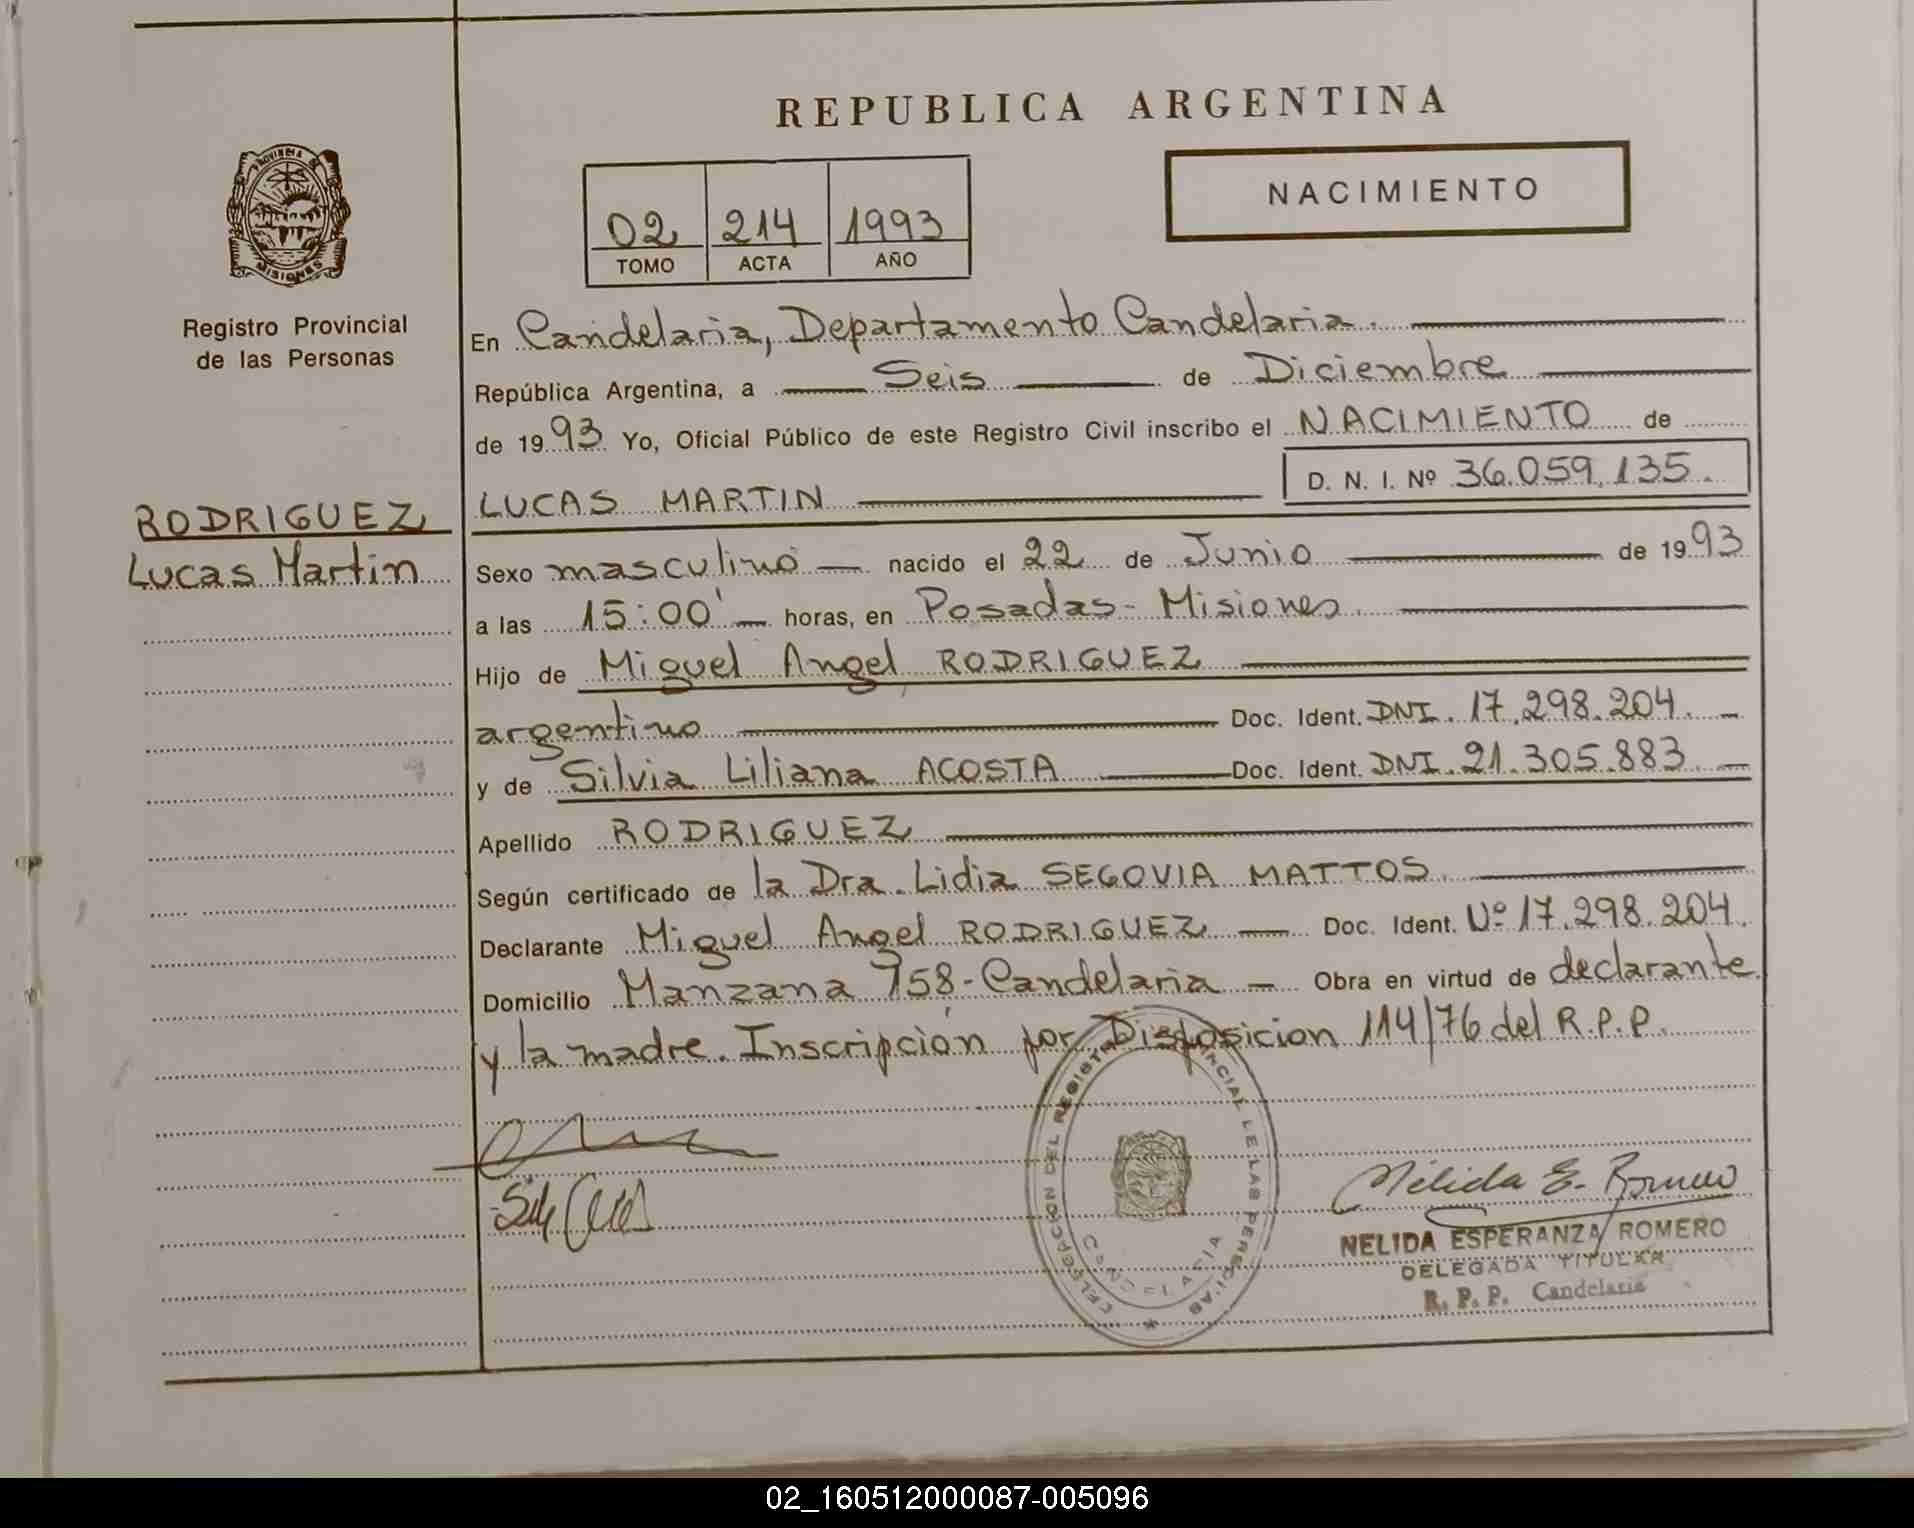 REPUBLICA ARGENTINA
PROVINCIA DE
MISIONES
Registro Provincial
de las Personas
02 214 1993
TOMO ACTA AÑO
NACIMIENTO
En Candelaria, Departamento Candelaria.
República Argentina, a Seis de Diciembre
de 1993 Yo, Oficial Público de este Registro Civil inscribo el NACIMIENTO de
D. N. I. Nº 36.059.135.
RODRIGUEZ
Lucas Martin
LUCAS MARTIN
Sexo masculino nacido el 22 de Junio de 1993
a las 15:00' horas, en Posadas - Misiones.
Hijo de Miguel Angel RODRIGUEZ
argentino Doc. Ident. DNI. 17.298.204.
y de Silvia Liliana ACOSTA Doc. Ident. DNI. 21.305.883
Apellido RODRIGUEZ
Según certificado de la Dra. Lidia SEGOVIA MATTOS.
Declarante Miguel Angel RODRIGUEZ Doc. Ident. Nº 17.298.204.
Domicilio Manzana 758 - Candelaria Obra en virtud de declarante
y la madre. Inscripción por Disposicion 114/76 del R.P.P.
Nélida E. Romero
NELIDA ESPERANZA ROMERO
DELEGADA TITULAR
R. P. P. Candelaria
02_160512000087-005096